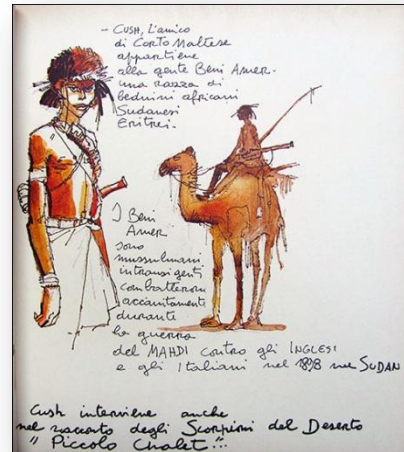 - CUSH, L'amico
di Corto Maltese
appartiene
alla gente Beni Amer.
una razza di
beduini africani
Sudanesi
Eritrei.
I Beni
Amer
sono
mussulmani
intransigenti
combatterono
accanitamente
durante
la guerra
del MAHDI contro gli INGLESI
e gli Italiani nel 1898 nel SUDAN
Cush interviene anche
nel racconto degli Scorpioni del Deserto
"Piccolo Chalet"...